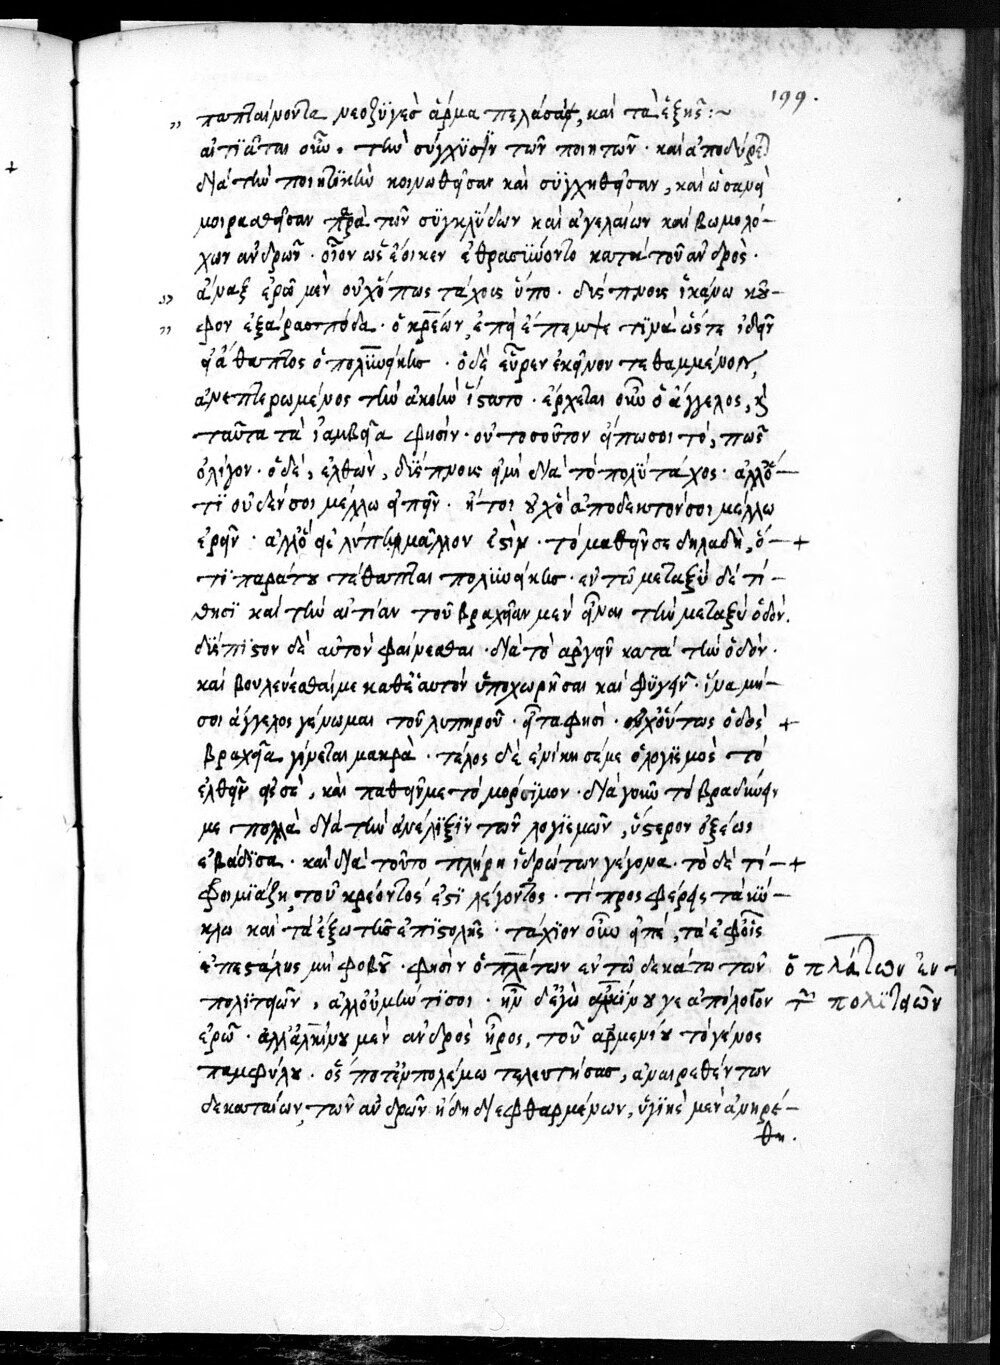 199.
παπταίνοντα νεοζυγὲς ἅρμα πελάσας, καὶ τὰ ἑξῆς :~
αἰτιᾶται οὖν. τὴν σύγχυσιν τῶν ποιητῶν. καὶ ἀποδύρεται
διὰ τὴν ποιητικὴν κοινωθεῖσαν καὶ συγχηθεῖσαν, καὶ ὡσανεὶ
μοιρασθεῖσαν παρὰ τῶν συγκλύδων καὶ ἀγελαίων καὶ βωμολό-
χων ἀνδρῶν. οἷον ὡς ἔοικεν ἐθρασύνοντο κατὰ τοῦ ἀνδρός.
ἄναξ ἐρῶ μὲν οὐχ ὅπως τάχους ὕπο. δύσπνους ἱκάνω κοῦ-
φον ἐξάρας πόδα. ὁ κρέων, ἐπεὶ ἔπεμψε τινὰ ὥστε ἰδεῖν
εἰ ἄθαπτος ὁ πολυνείκης. ὁ δὲ εὗρεν ἐκεῖνον τεθαμμένον,
ἀνεπτερωμένος τὴν ἀκοὴν ἵστατο. ἔρχεται οὖν ὁ ἄγγελος, καὶ
ταῦτα τὰ ἰαμβεῖα φησίν. οὐ τοσοῦτον εἴπω σοι τό, πῶς
ὀλίγον. ὁ δὲ, ἐλθὼν, δύσπνους εἰμὶ διὰ τὸ πολὺ τάχος. ἀλλ' ὅ-
τι οὐδέν σοι μέλλω εἰπεῖν. ἤτοι οὐχ ὃ ἀποδεκτόν σοι μέλλω
ἐρεῖν. ἀλλ' ὅ σε λύπην μᾶλλον ἐστὶν. τὸ μαθεῖν σε δηλαδὴ, ὅ- +
τι παρά του τέθαπται πολυνείκης. ἐν τῶ μεταξὺ δὲ τί-
θησι καὶ τὴν αἰτίαν τοῦ βραχεῖαν μὲν εἶναι τὴν μεταξὺ ὁδόν.
αὐτὸν φαίνεσθαι. διὰ τὸ ἀργεῖν κατὰ τὴν ὁδόν.
καὶ βουλεύεσθαί με καθ' ἑαυτὸν ὑποχωρῆσαι καὶ φυγεῖν. ἵνα μή-
σοι ἄγγελος γένωμαι τοῦ λυπηροῦ. εἶτα φησὶ. οὐχ οὕτως ὁδὸς +
βραχεῖα γίνεται μακρὰ. τέλος δὲ ἐνίκησέ με ὁ λογισμὸς τὸ
ἐλθεῖν εἰς σὲ, καὶ παθεῖν με τὸ μόρσιμον. διὰ γοῦν τὸ βραδύνειν
με πολλὰ διὰ τὴν ἀνέλιξιν τῶν λογισμῶν, ὕστερον ὀξέως
ἐβάδισα. καὶ διὰ τοῦτο πλήρη ἱδρώτων γέγονα. τὸ δὲ τί- +
φροιμιάζη, τοῦ κρέοντός ἐστι λέγοντος. τί προσφέρεις τὰ κύ-
κλω καὶ τὰ ἔξω τῆς ἐπιστολῆς. τάχιον οὖν εἰπέ, τὰ ἐφ' οἷς
ἐπεστάλης μὴ φοβοῦ. φησὶν ὁ πλάτων ἐν τῶ δεκάτω τῶν
πολιτειῶν, ἀλλ' οὐ μέντοι σοι. ἦν δ' ἐγὼ ἀλκίνου γε ἀπόλογον
ἐρῶ. ἀλλ' ἀλκίμου μὲν ἀνδρὸς ἠρὸς, τοῦ ἀρμενίου τὸ γένος
παμφύλου. ὅς ποτε ἐν πολέμω τελευτήσας, ἀναιρεθέντων
δεκαταίων, τῶν ἀνδρῶν ἤδη διεφθαρμένων, ὑγιὴς μὲν ἀνηρέ-
θη.
ὁ πλάτων ἐν
τ πολιτειῶν